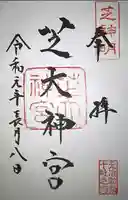 芝神明
奉拝
芝大神宮
令和元年長月八日